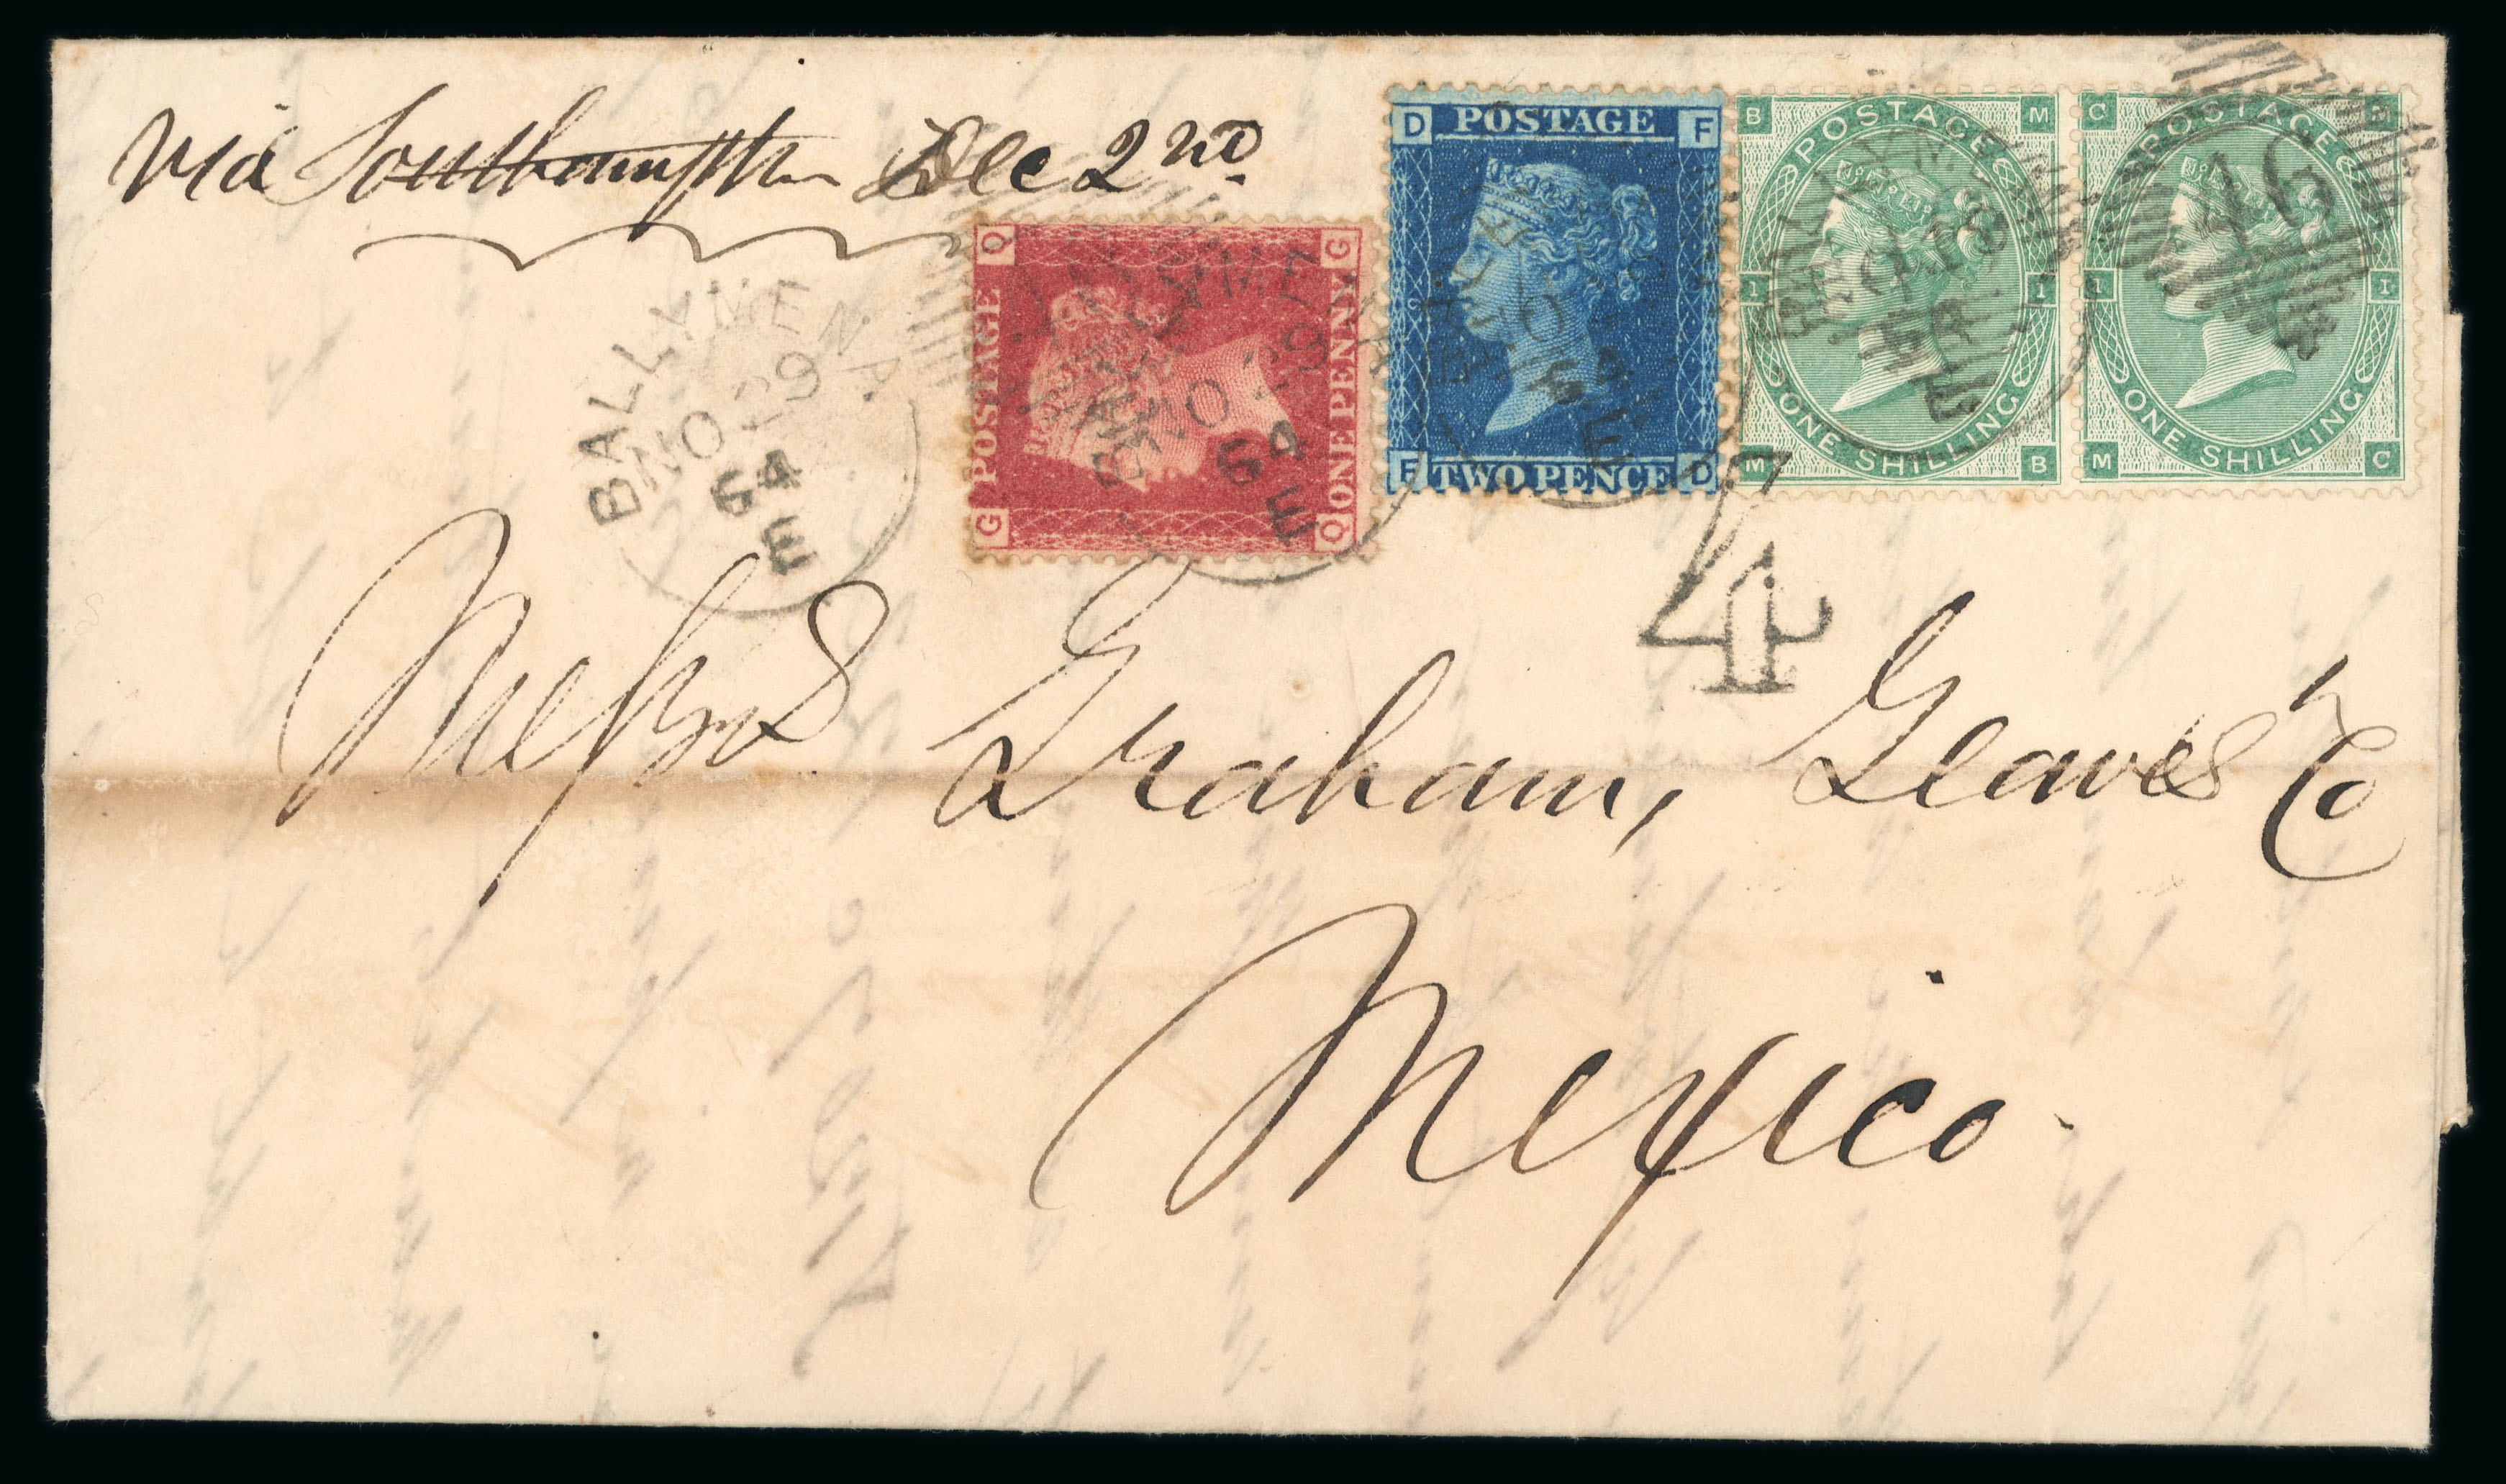 via Southampton Dec 2nd
BALLYMENA
NO 29
64
E
Q G
POSTAGE
ONE PENNY
G Q
BALLYME
NO 29
64
E
D POSTAGE F
F TWO PENCE D
64
E
B M
POSTAGE
1 I
ONE SHILLING
M B
C M
POSTAGE
1 I
ONE SHILLING
M C
16
4
Messrs Graham, Geaves & Co
Mexico